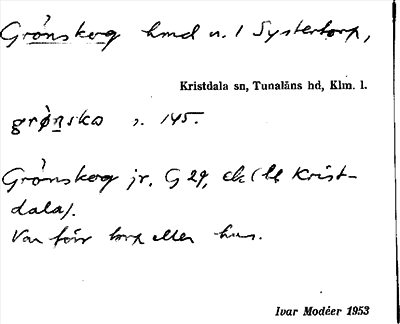 Grönskog hmd u. 1 Systertorp,
Kristdala sn, Tunaläns hd, Klm. l.
grø̀nsko s. 145.
Grönskog jr. G 29, ek (ll Krist-
dala).
Var förr torp eller hus.
Ivar Modéer 1953